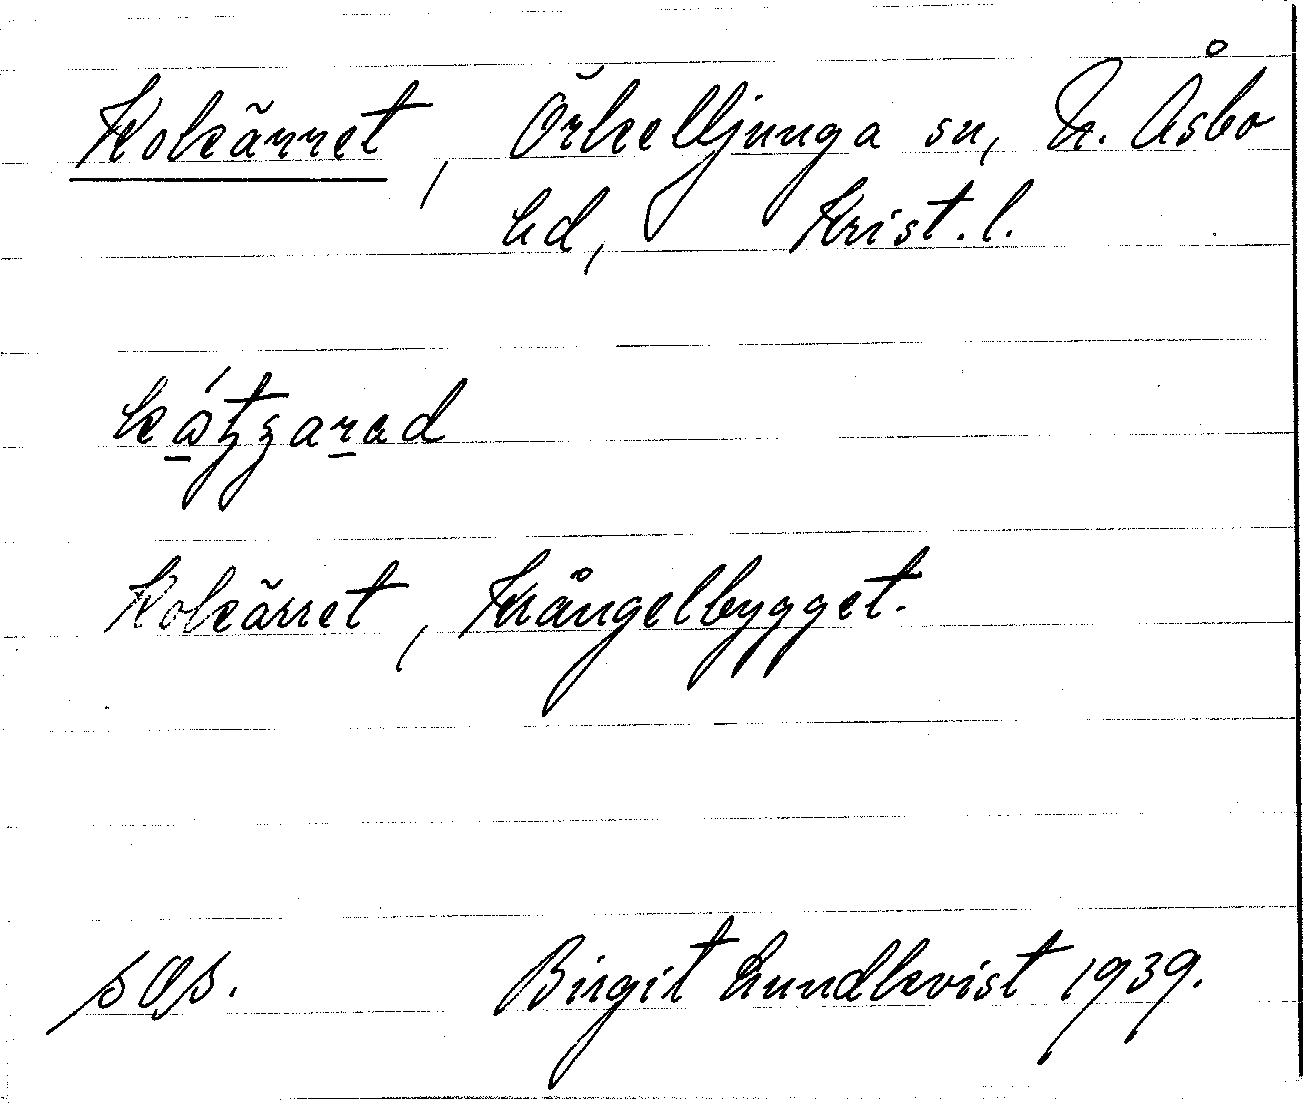 Kokärret, Örkelljunga sn, N. Åsbo
hd, Krist. l.
Kokärret, Krångelbygget.
sas. Birgit Lundkvist 1939.